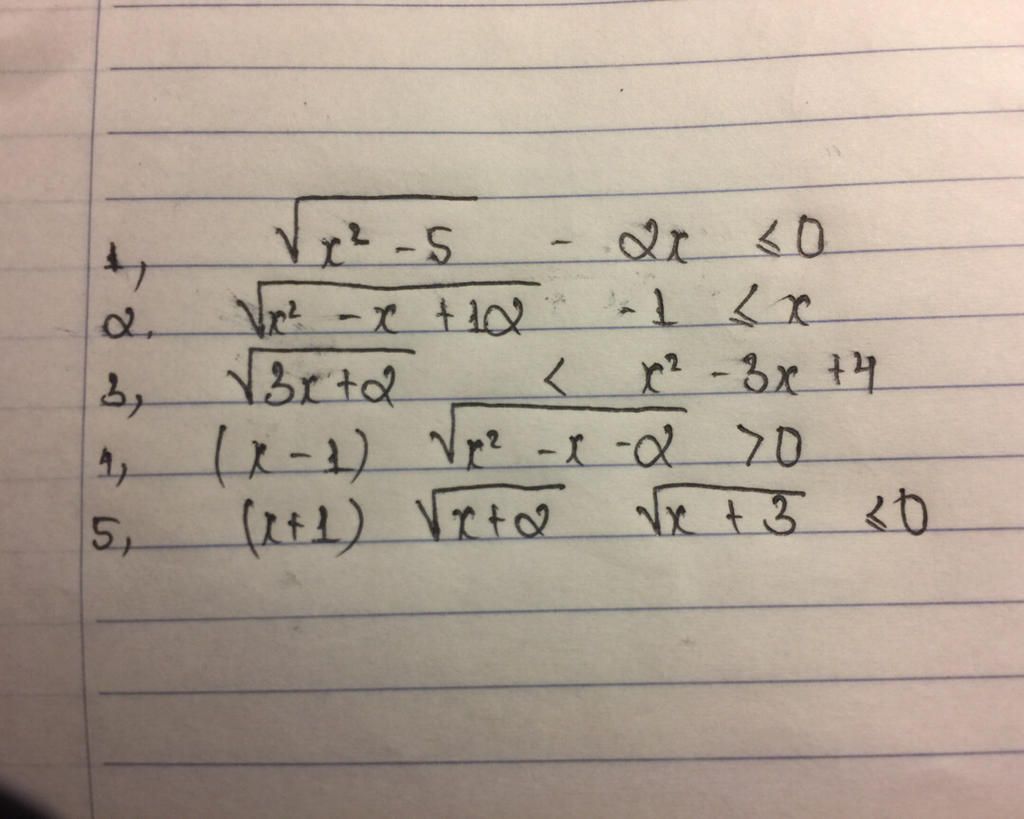 1, √(x² - 5) - 2x ≤ 0
2. √(x² - x + 12) - 1 ≤ x
3, √(3x+2) < x² - 3x + 4
4, (x - 1) √(x² - x - 2) > 0
5, (x+1) √(x+2) √(x + 3) ≤ 0